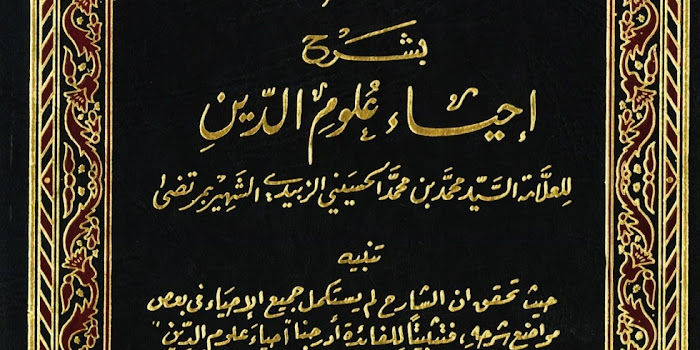 بشرح
إحياء علوم الدّين
للعلّامة السّيّد محمّد بن محمّد الحسيني الزبيدي الشهير بمرتضى
تنبيه
حيث تحقق ان الشارح لم يستكمل جميع الإحياء في بعض
مواضع شرحه، فتثبيتاً للفائدة أدرجنا "إحياء علوم الدّين"